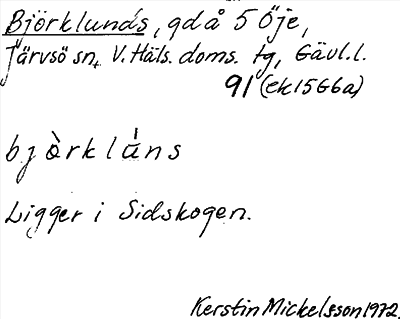 Björklunds, gd å 5 Öje,
Järvsö sn, V. Häls. doms. tg, Gävl. l.
91 (ek 15G6a)
bjòrkláns
Ligger i Sidskogen.
Kerstin Mickelsson 1972.